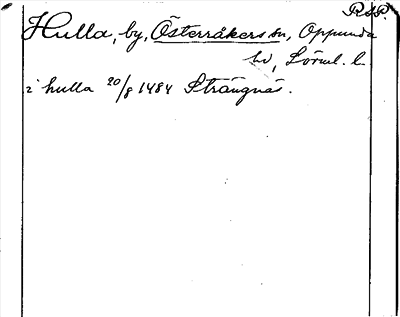 RSP.
Hulla, by, Österråkers sn, Oppunda
hd, Sörml. l.
i hulla 20/8 1484 Strängnäs.